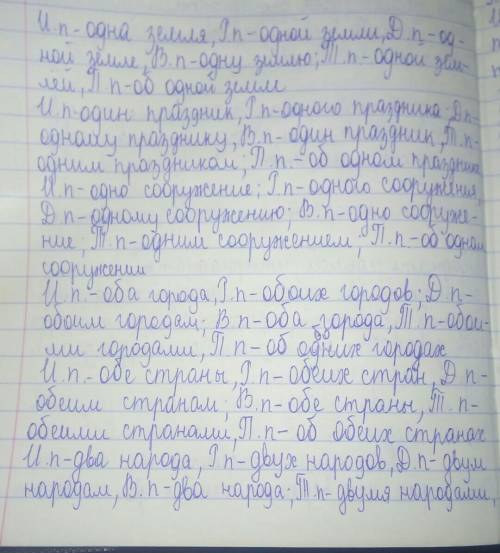 И.п-одна земля, Р.п-одной земли, Д.п-од-
ной земле, В.п-одну землю; Т.п-одной зем-
лёй, П.п-об одной земле
И.п-один праздник, Р.п-одного праздника, Д.п-
одному празднику, В.п-один праздник, Т.п-
одним праздником; П.п.-об одном празднике
И.п-одно сооружение; Р.п-одного сооружения,
Д.п-одному сооружению; В.п-одно сооруже-
ние; Т.п-одним сооружением; П.п-об одном
сооружении
И.п.-оба города, Р.п-обоих городов; Д.п-
обоим городам; В.п-оба города, Т.п-обои-
ми городами, П.п-об одних городах
И.п.-обе страны, Р.п-обеих стран, Д.п-
обеим странам; В.п-обе страны, Т.п-
обеими странами, П.п-об обеих странах
И.п-два народа, Р.п-двух народов, Д.п-двум
народам, В.п-два народа; Т.п-двумя народами,